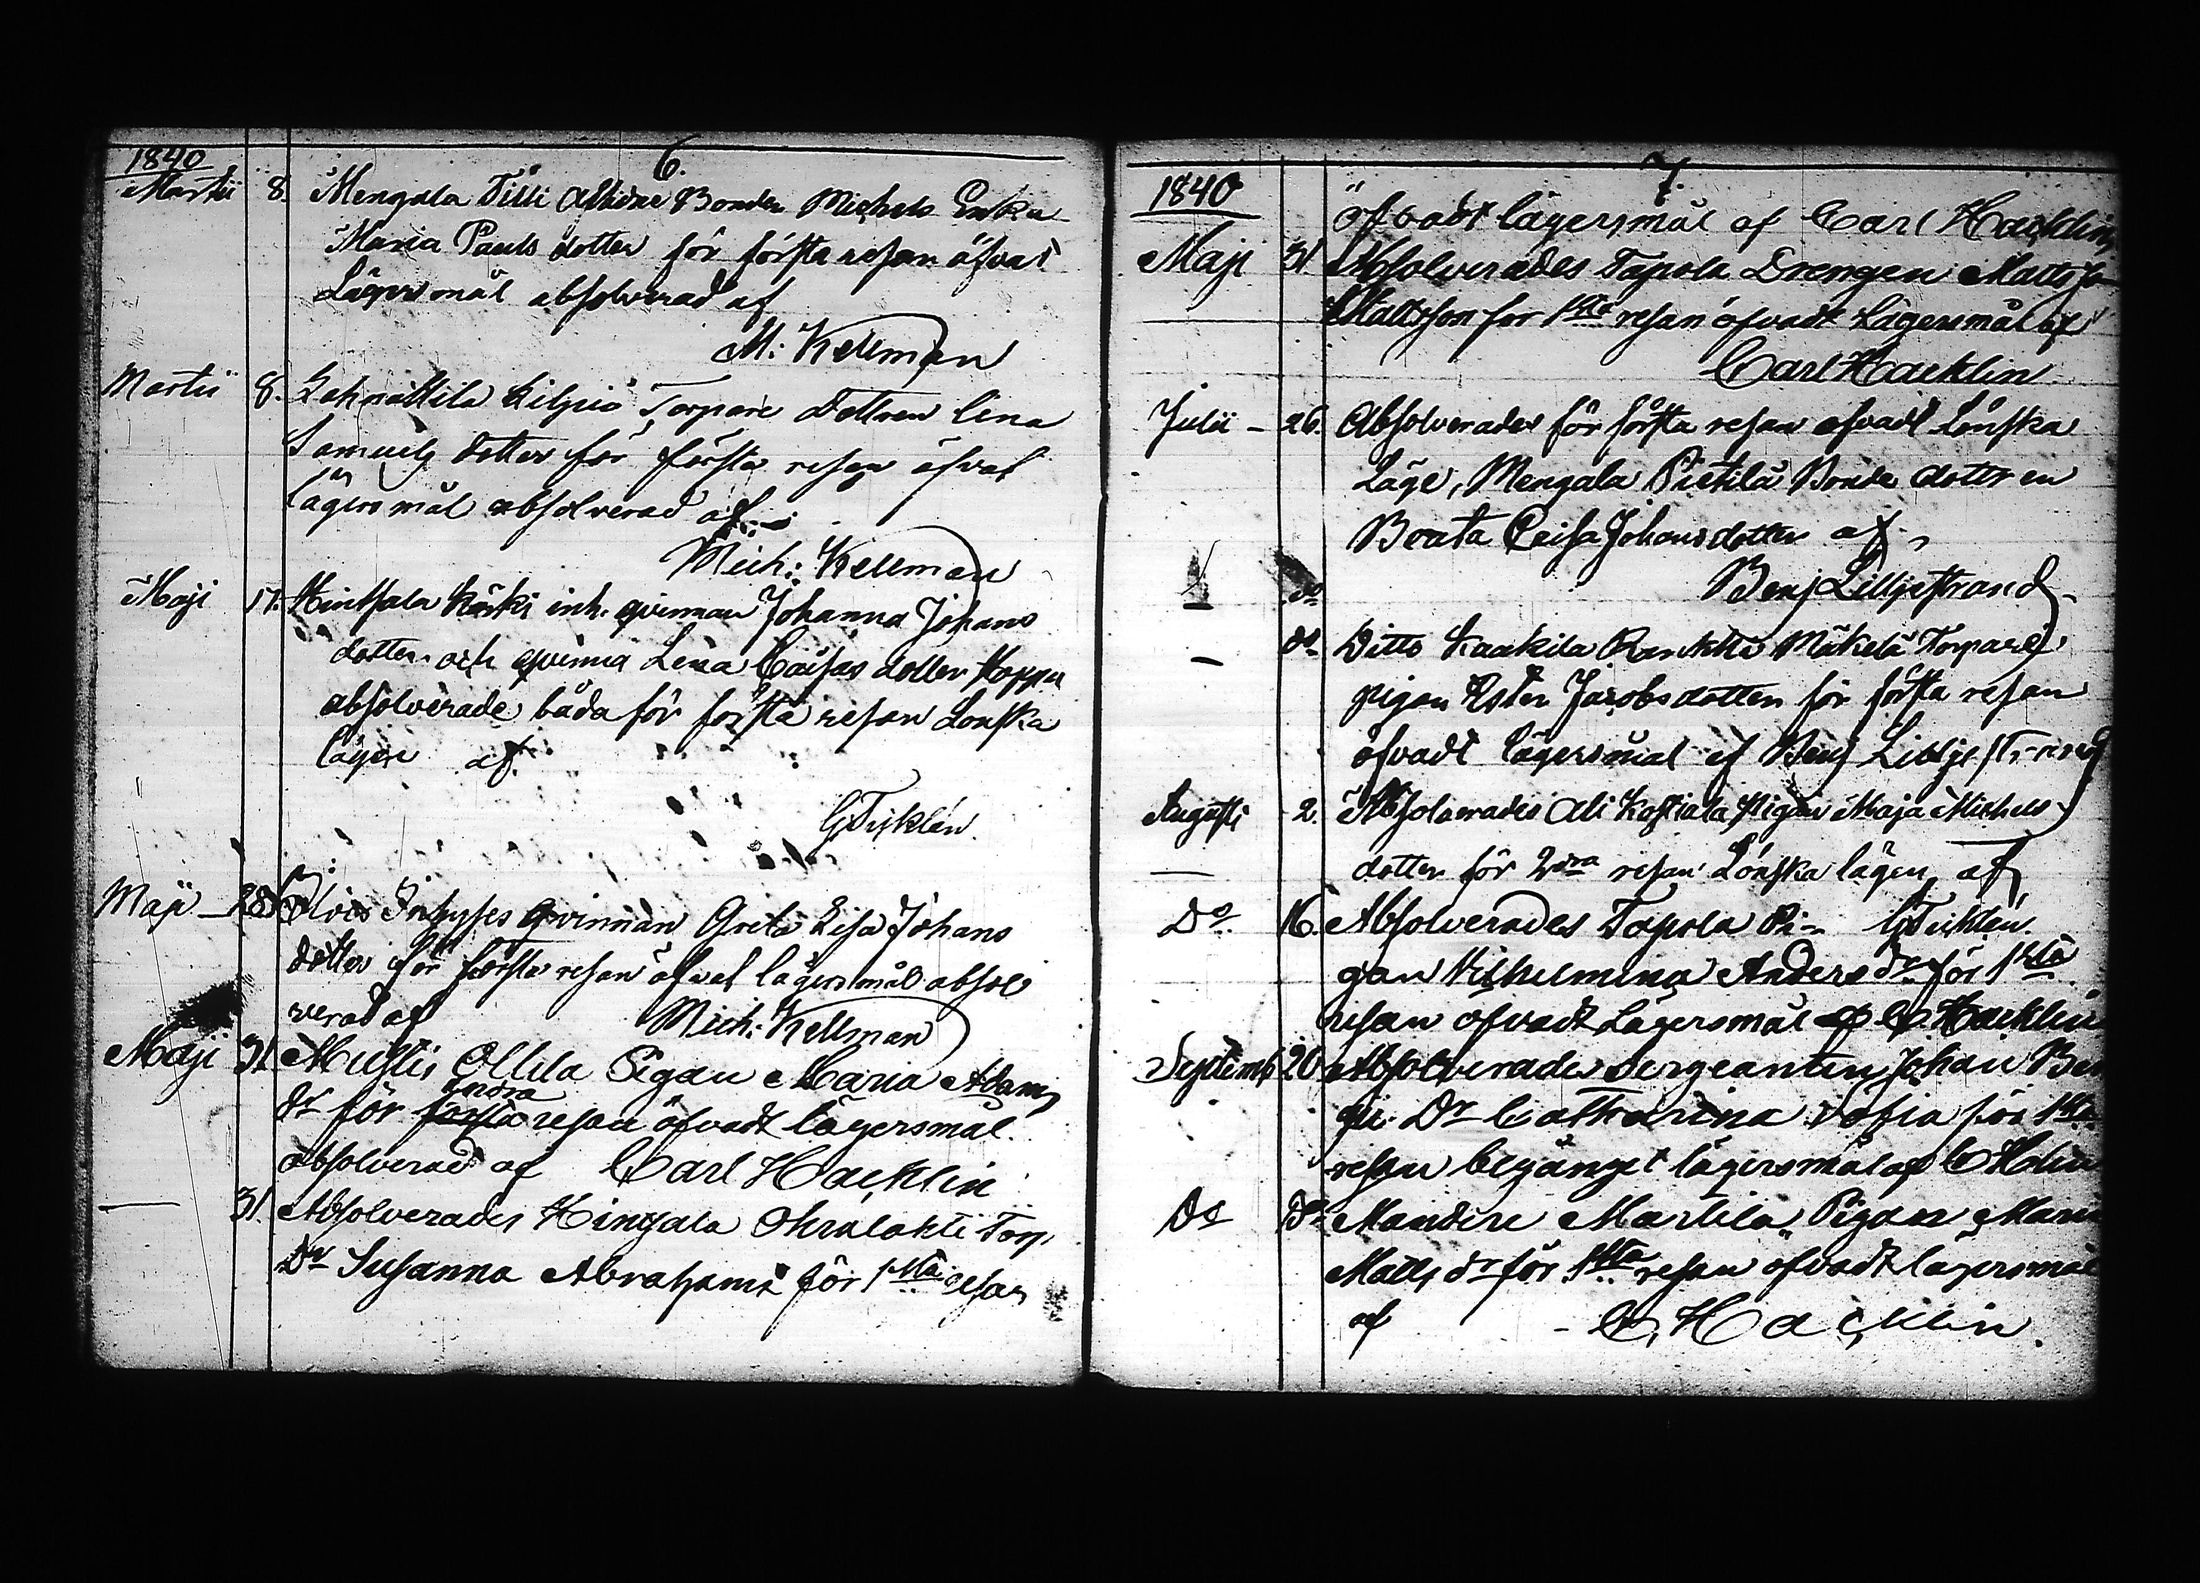 6.
1840
Martii 8. Mengala Tilli aflidne Bonden Michels Enka
Maria Pauls dotter för första resan öfvat
Lägersmål absolverad af
M: Kellman
Martii 8. Lehnättilä Kilpiö Torpare Dottren Lena
Samuels dotter för första resan öfvat
lägersmål absolverad af
Mich: Kellman
Maji 17. Hintsala Kärki inh. qvinnan Johanna Johans
dotter och qvinna Lena Caisas dotter Hoppu
absolverade båda för första resan Lönska
läger af
G Ticklén
Maji 28 Inhyses qvinnan Greta Lisa Johans
dotter för första resan öfvat lägersmål absol
verad af Mich: Kellman
Maji 31. Mustis Ollila Pigan Maria Adams
dr för första andra resan öfvadt lägersmål
absolverad af Carl Hacklin
— 31. Absolverades Hingala Torp.
Dr Susanna Abrahams för 1sta resan
7.
1840
öfvadt lägersmål af Carl Hacklin
Maji 31. Absolverades Tapola Drengen Matts
Mattsson för 1sta resan öfvadt Lägersmål af
Carl Hacklin
Julii – 26. Absolverades för första resan öfvadt Lönska
Läge, Mengala Pietilä Bonde dottren
Beata Caisa Johansdotter af
Benj Lilljestrand
— do Ditto Kaakila Mäkelä Torpare
pigan Ester Jacobsdotter för första resan
öfvadt lägersmål af Benj Lilljestrand
Augusti 2. Absolverades Ali Pigan Maja Michels
— dotter för 2dra resan Lönska lägen af
Do 16. Absolverades Tapola Pi- G Ticklén.
gan Vilhelmina Anders dr för 1sta
resan öfvadt Lägersmål af C. Hacklin
Septemb 20 Absolverades Sergeanten Johan
Dr Catharina Sofia för 1sta
resan begånget lägersmål af C H
Do Do Mandere Marttila Pigan Maria
Matts dr för 1sta resan öfvadt lägersmål
af – C. Hacklin.